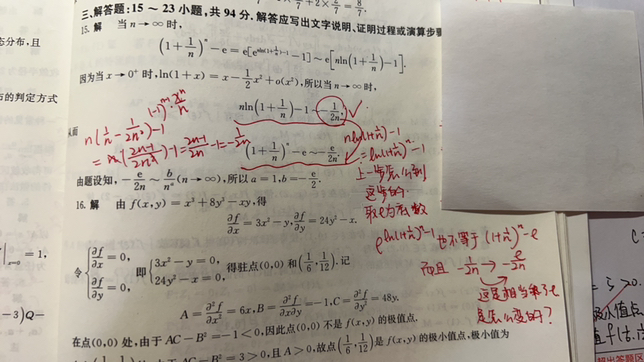 7 + 2×2/7 = 8/7.
三、解答题:15 ～ 23 小题,共 94 分.解答应写出文字说明、证明过程或演算步骤
态分布,且
15. 解 当 n→∞ 时,
(1+1/n)^n − e = e[e^{nln(1+1/n)−1} − 1] ~ e[nln(1+1/n) − 1].
因为当 x→0⁺ 时,ln(1+x) = x − 1/2 x² + o(x²),所以当 n→∞ 时,
布的判定方式
nln(1+1/n) − 1 ~ −1/2n,
(-1)^{n-1} x^n/n
从而
n(1/n − 1/2n²) −1
= n·(2n-1/2n²) −1 = 2n-1/2n −1 = −1/2n
(1+1/n)^n − e ~ −e/2n.
nln(1+1/n) −1
= ln(1+1/n)^n −1
上一步怎么到
这步的.
取e为底数
由题设知,−e/2n ~ b/n^a (n→∞),所以 a = 1,b = −e/2.
16. 解 由 f(x,y) = x³ + 8y³ − xy,得
∂f/∂x = 3x² − y, ∂f/∂y = 24y² − x.
e^{ln(1+1/n)^n −1} 也不等于 (1+1/n)^n −e
而且 −1/2n → −e/2n
这是相当乘了e
是怎么变的?
令 {∂f/∂x = 0, ∂f/∂y = 0, 即 {3x² − y = 0, 24y² − x = 0, 得驻点(0,0) 和 (1/6, 1/12). 记
|x=0 = 1,
A = ∂²f/∂x² = 6x, B = ∂²f/∂x∂y = −1, C = ∂²f/∂y² = 48y.
−3)Q−
在点(0,0) 处,由于 AC − B² = −1 < 0,因此点(0,0) 不是 f(x,y) 的极值点.
AC − B² = 3 > 0,且 A > 0,故点(1/6, 1/12)是 f(x,y) 的极小值点,极小值为